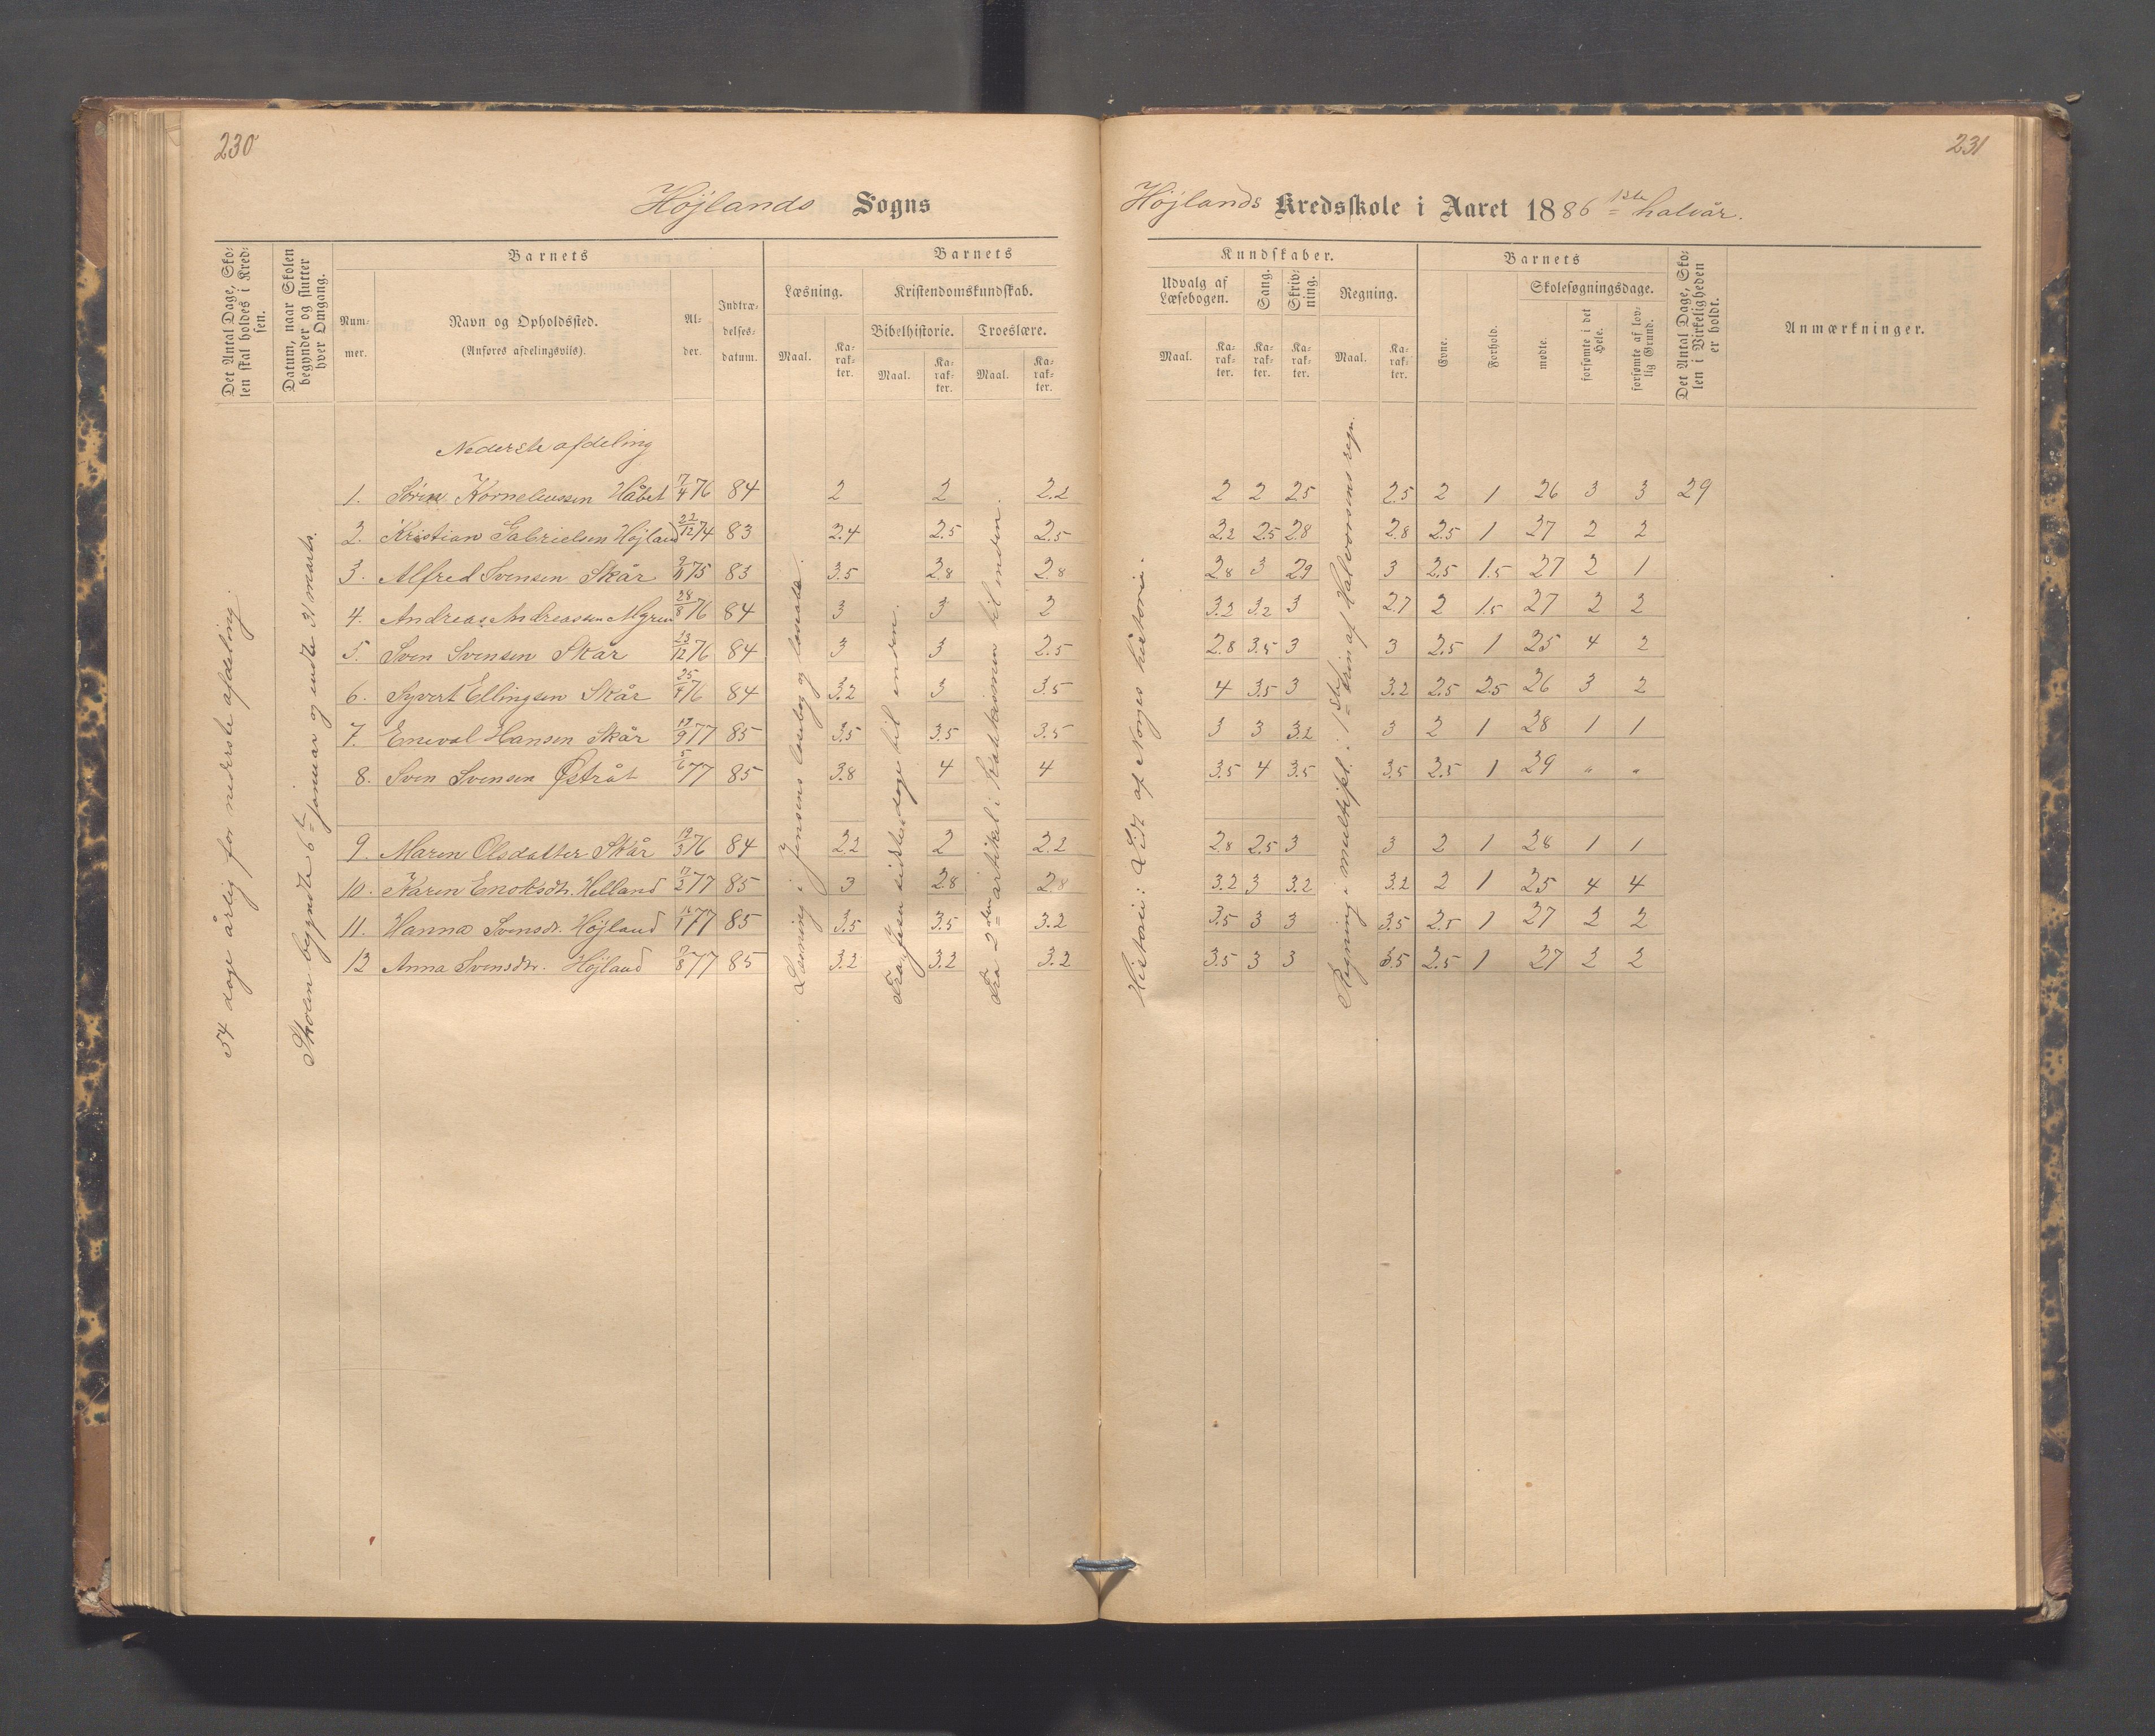 230
231
Højlands Sogns
Højlands Kredsskole i Aaret 1886 1ste halvår.
Det Antal Dage, Sko-
len skal holdes i Kred-
sen.
Datum, naar Skolen
begynder og slutter
hver Omgang.
Barnets
Num-
mer.
Navn og Opholdssted.
(Anføres afdelingsvils).
Al-
der.
Indtræ-
delses-
datum.
Barnets
Læsning.
Kristendomskundskab.
Bibelhistorie.
Troeslære.
Maal.
Ka-
rak-
ter.
Maal.
Ka-
rak-
ter.
Maal.
Ka-
rak-
ter.
Kundskaber.
Udvalg af
Læsebogen.
Sang.
Skriv-
ning.
Regning.
Maal.
Ka-
rak-
ter.
Ka-
rak-
ter.
Ka-
rak-
ter.
Maal.
Ka-
rak-
ter.
Barnets
Evne.
Forhold.
Skolesøgningsdage.
mødte.
forsømte i det
Hele.
forsømte af lov-
lig Grund.
Det Antal Dage, Sko-
len i Virkeligheden
er holdt.
Anmærkninger.
54 dage årlig for nederste afdeling.
Skolen begyndte 6te januar og endte 31 marts.
Læsning i Jensens læsebog og
Fra Jesu sidste dage til enden.
Fra 2den artikel i til enden.
Historie: Lidt af Norges historie.
Regning i multipl.: 1ste trin af Halvorsens regn.
Nederste afdeling
1. Sören Korneliussen Håbet 7/4 76 84 2 2 2.2 2 2 2.5 2.5 2 1 26 3 3 29
2. Kristian Gabrielsen Højland 22/12 74 83 2.4 2.5 2.5 2.2 2.5 2.8 2.8 2.5 1 27 2 2
3. Alfred Svensen Skår 75 83 3.5 2.8 2.8 2.8 3 2.9 3 2.5 1.5 27 2 1
4. Andreas Andreassen Myren 28/8 76 84 3 3 2 3.2 3.2 3 2.7 2 1.5 27 2 2
5. Sven Svensen Skår 13/12 76 84 3 3 2.5 2.8 3.5 3 3 2.5 1 25 4 2
6. Syvert Ellingsen Skår 76 84 3.2 3 3.5 4 3.5 3 3.2 2.5 2.5 26 3 2
7. Eneval Hansen Skår 19/9 77 85 3.5 3.5 3.5 3 3 3.2 3 2 1 28 1 1
8. Sven Svensen Østråt 5/6 77 85 3.8 4 4 3.5 4 3.5 3.5 2.5 1 29 " "
9. Maren Olsdatter Skår 19/3 76 84 2.2 2 2.2 2.8 2.5 3 3 2 1 28 1 1
10. Karen Enoksdtr. Helland 77 85 3 2.8 2.8 3.2 3 3.2 3.2 2 1 25 4 4
11. Hanna Svensdr. Højland 77 85 3.5 3.5 3.2 3.5 3 3 3.5 2.5 1 27 2 2
12 Anna Svensdtr. Højland 77 85 3.2 3.2 3.2 3.5 3 3 3.5 2.5 1 27 2 2